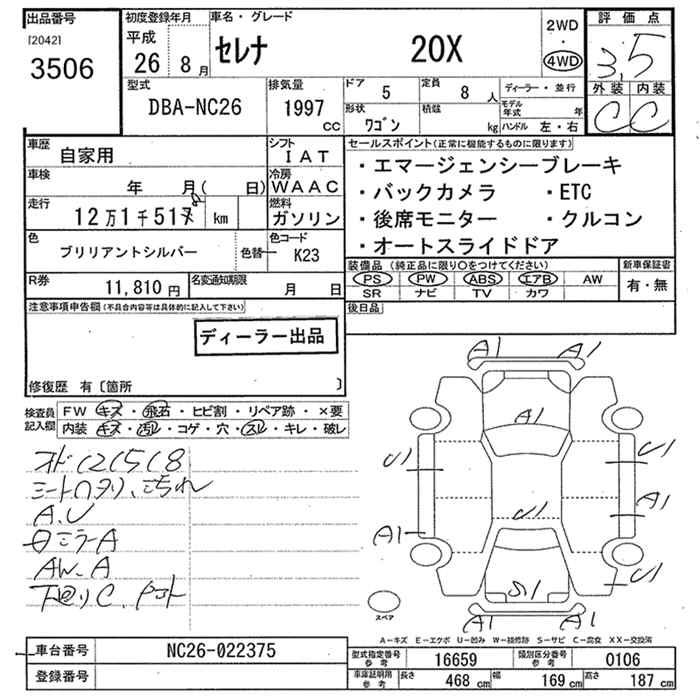 出品番号
[2042]
3506
初度登録年月
平成
26 8 月
車名・グレード
セレナ 20X
2WD
・
4WD
評価点
3.5
外装 内装
C C
型式
DBA-NC26
排気量
1997 cc
ドア 5
定員 8 人
ディーラー・並行
形状 ワゴン
積載 kg
モデル年式 年
ハンドル 左・右
車歴 自家用
シフト IAT
車検 年 月( 日)
冷房 WAAC
走行 12万1千517 8 km
燃料 ガソリン
色 ブリリアントシルバー
色替
色コード K23
R券 11,810円
名変通知期限 月 日
セールスポイント(正常に機能するものに限ります)
・エマージェンシーブレーキ
・バックカメラ ・ETC
・後席モニター ・クルコン
・オートスライドドア
装備品(純正品に限り○をつけてください)
PS PW ABS エアB AW
SR ナビ TV カワ
新車保証書
有・無
後日品
注意事項申告欄(不具合内容等は具体的に記入して下さい)
ディーラー出品
修復歴 有〔箇所 〕
検査員記入欄
FW キズ・飛石・ヒビ割・リペア跡・×要
内装 キズ・汚レ・コゲ・穴・スレ・キレ・破レ
オド121518
シートヘタリ、こちれ
A.U
ミラーA
AW.A
下廻りC.
A1 A1
A1
U1 U1
A1
A1
U1
U1
S1
A1 A1
スペア
A-キズ E-エクボ U-凹み W-補修跡 S-サビ C-腐食 XX-交換済
車台番号 NC26-022375
登録番号
型式指定番号参考 16659
類別区分番号参考 0106
車庫証明用参考
長さ 468 cm
幅 169 cm
高さ 187 cm